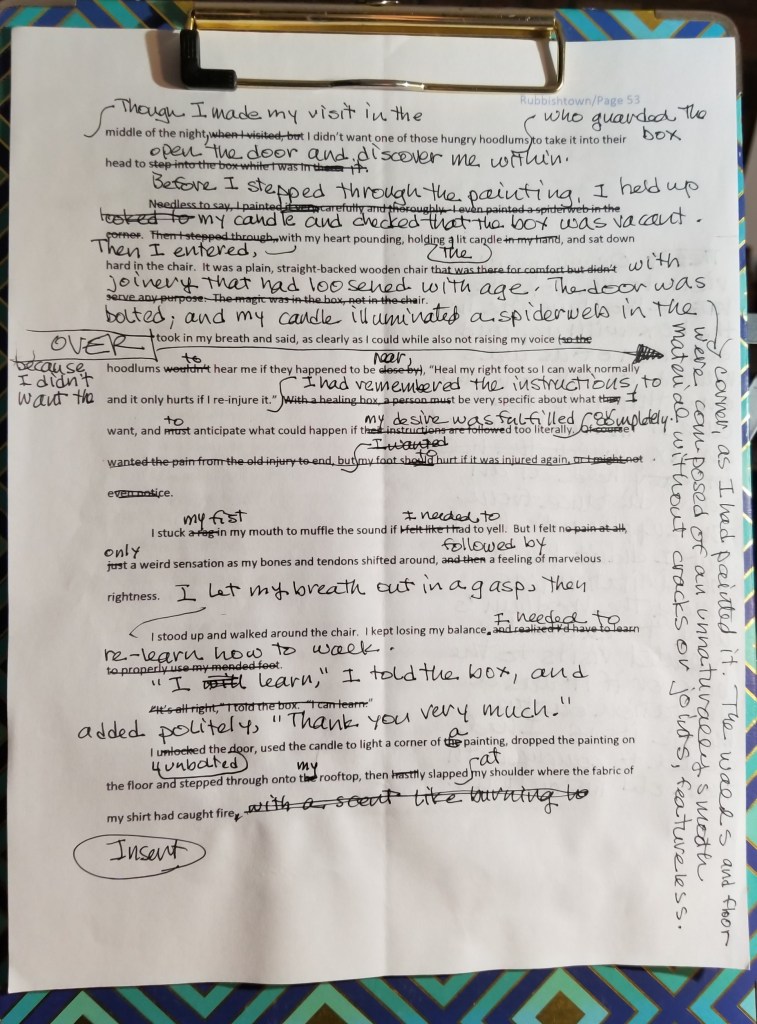 Rubbishtown/Page 53
Though I made my visit in the
who guarded the
middle of the night, when I visited, but I didn't want one of those hungry hoodlums to take it into their
box
open the door and discover me within.
head to step into the box while I was in it.
Before I stepped through the painting, I held up
Needless to say, I painted it very carefully and thoroughly. I even painted a spiderweb in the
looked to my candle and checked that the box was vacant.
corner. Then I stepped through, with my heart pounding, holding a lit candle in my hand, and sat down
Then I entered,
the
hard in the chair. It was a plain, straight-backed wooden chair that was there for comfort but didn't with
joinery that had loosened with age. The door was
serve any purpose. The magic was in the box, not in the chair.
bolted, and my candle illuminated a spiderweb in the
corner, as I had painted it. The walls and floor
were composed of an unnaturally smooth
material without cracks or joints, featureless.
OVER
I took in my breath and said, as clearly as I could while also not raising my voice (so the
because
I didn't
want the
to
near,
hoodlums wouldn't hear me if they happened to be close by), "Heal my right foot so I can walk normally
I had remembered the instructions, to
and it only hurts if I re-injure it." With a healing box, a person must be very specific about what they I
to
my desire was fulfilled
completely.
want, and must anticipate what could happen if their instructions are followed too literally. Of course
I wanted
to
wanted the pain from the old injury to end, but my foot should hurt if it was injured again, or I might not
even notice.
my fist
I needed to
I stuck a rag in my mouth to muffle the sound if I felt like I had to yell. But I felt no pain at all,
only
followed by
just a weird sensation as my bones and tendons shifted around, and then a feeling of marvelous
rightness. I let my breath out in a gasp, then
I needed to
I stood up and walked around the chair. I kept losing my balance, and realized I'd have to learn
re-learn how to walk.
to properly use my mended foot.
"I will learn," I told the box, and
"It's all right," I told the box. "I can learn."
added politely, "Thank you very much."
a
I unlocked the door, used the candle to light a corner of the painting, dropped the painting on
unbolted
my
at
the floor and stepped through onto the rooftop, then hastily slapped my shoulder where the fabric of
my shirt had caught fire, with a scent like burning to
Insert